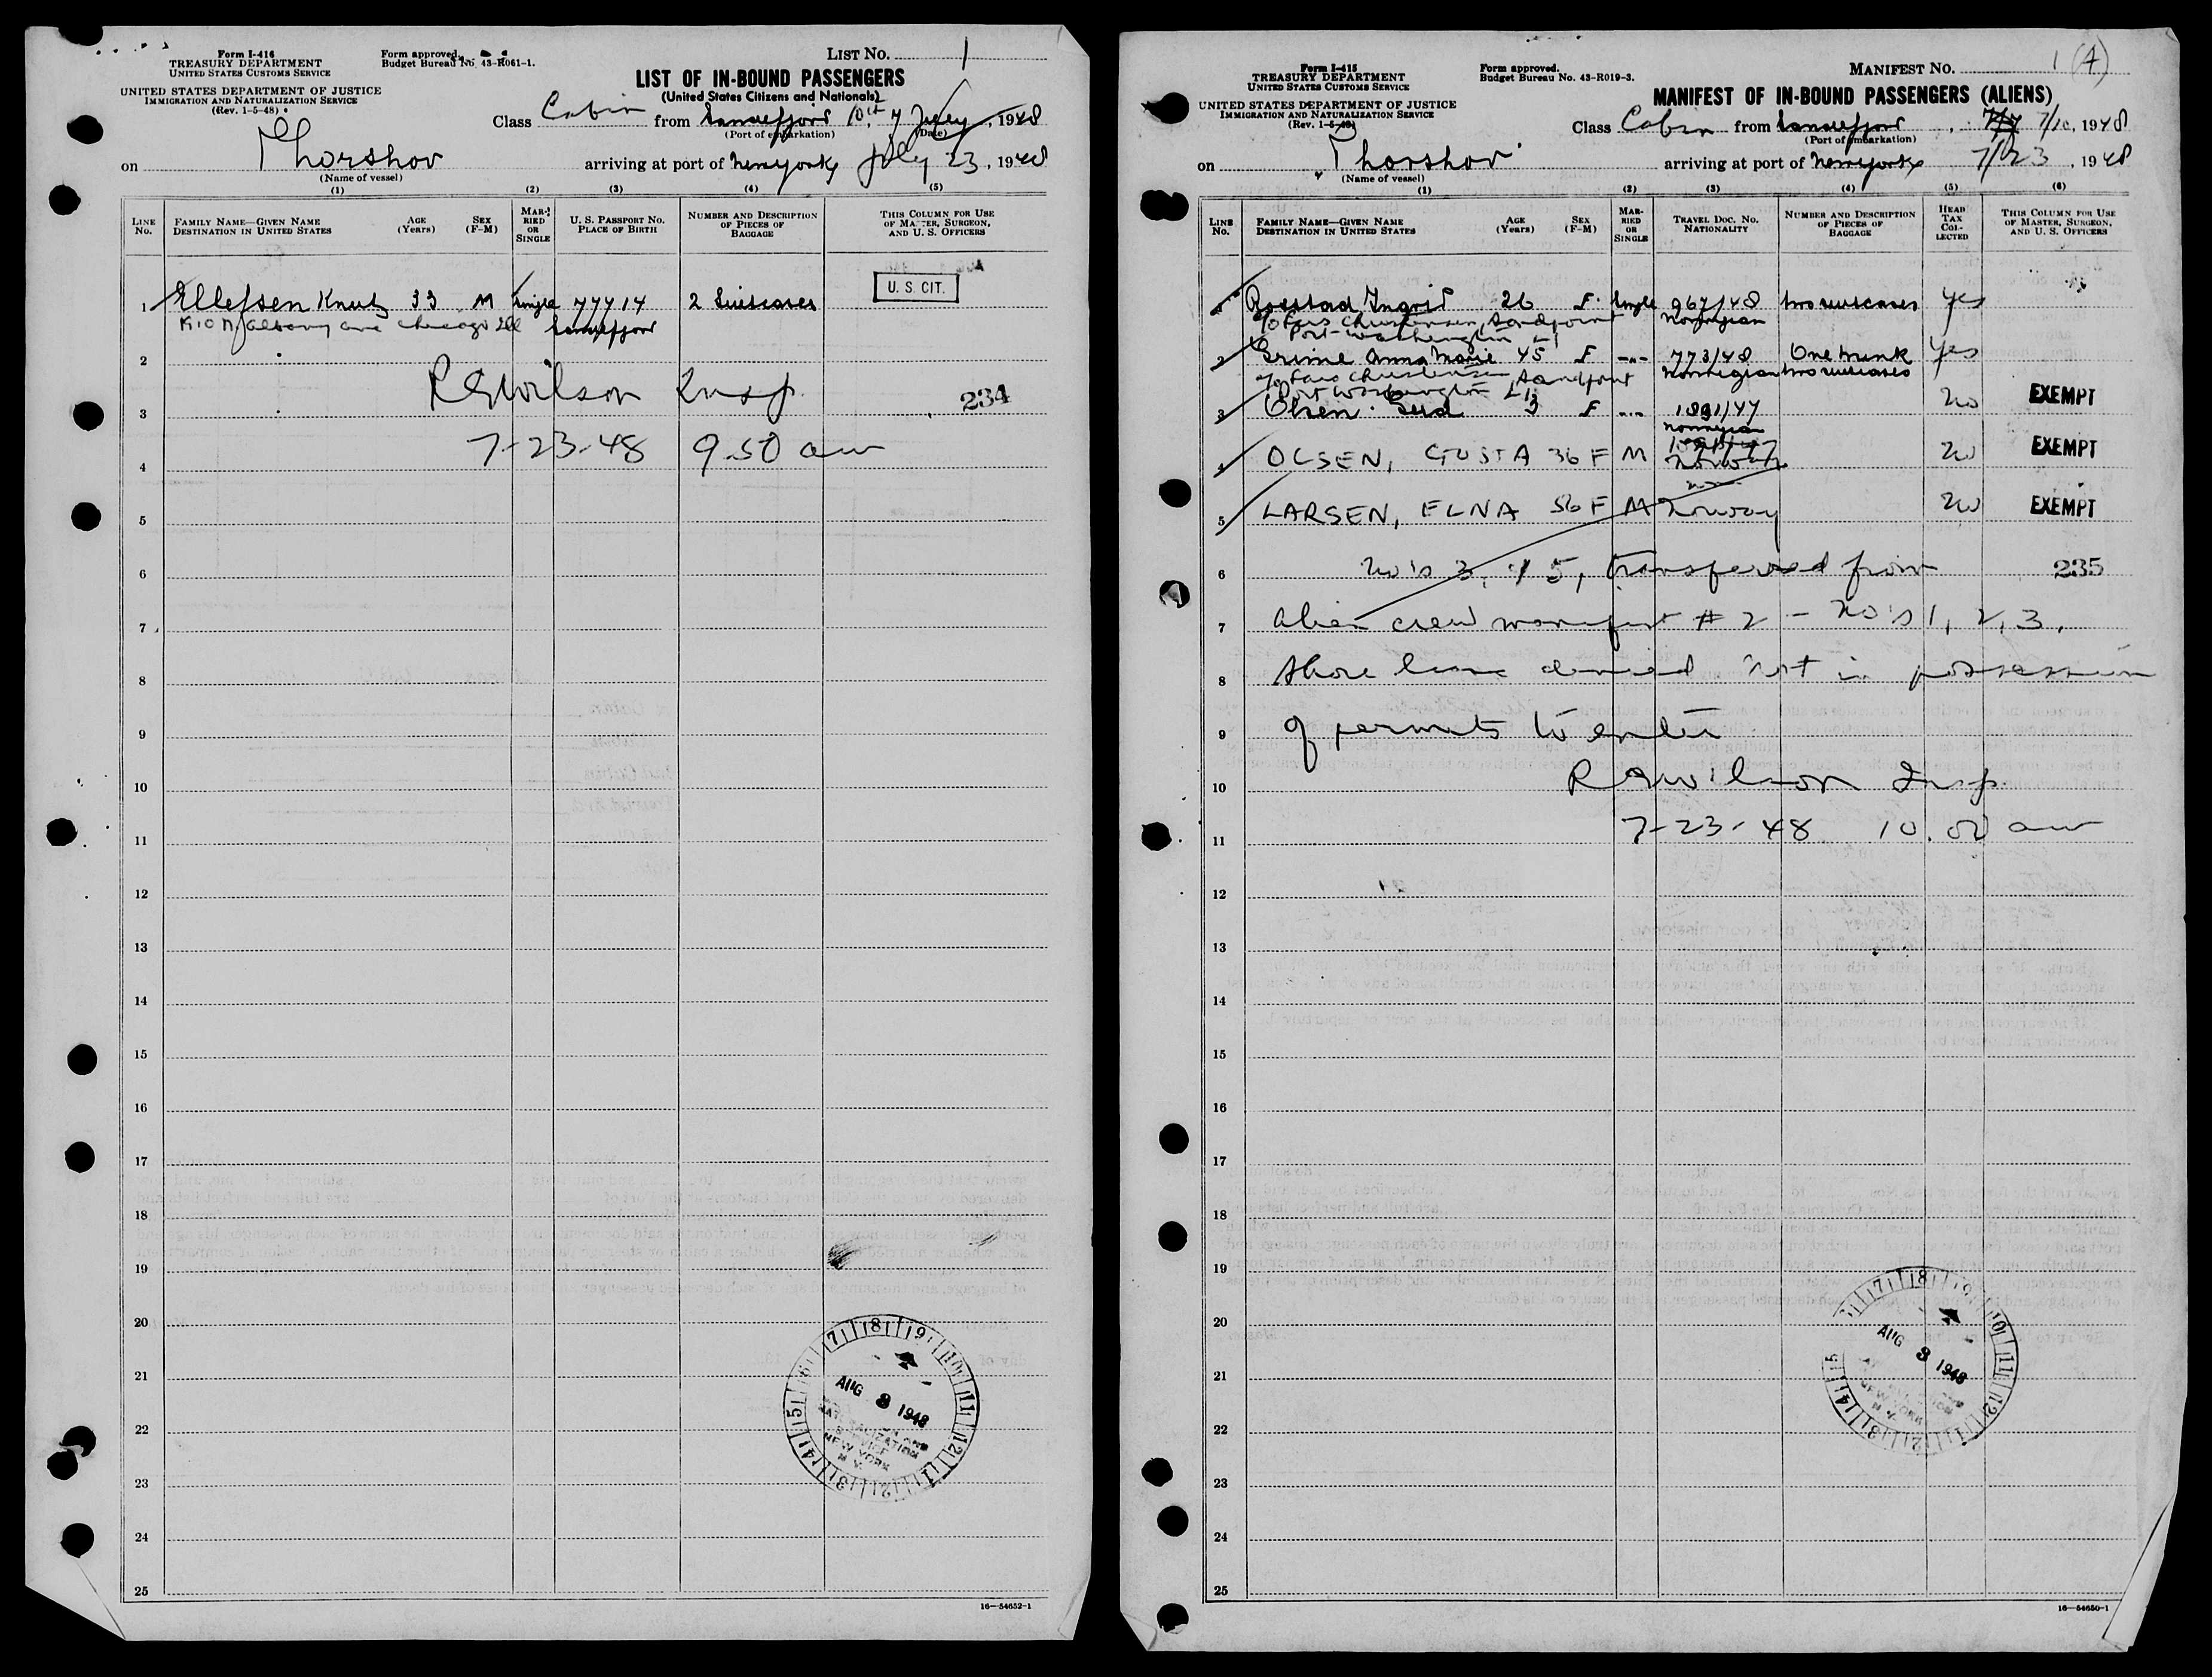 Form I-416
TREASURY DEPARTMENT
UNITED STATES CUSTOMS SERVICE
UNITED STATES DEPARTMENT OF JUSTICE
IMMIGRATION AND NATURALIZATION SERVICE
(Rev. 1-5-48)
Form approved.
Budget Bureau No. 43-R061-1.
LIST NO. 1
LIST OF IN-BOUND PASSENGERS
(United States Citizens and Nationals)
Class Cabin from Sandefjord 10th 7 July, 1948
(Port of embarkation) (Date)
on Thorshov arriving at port of New york, July 23, 1948
(Name of vessel)
(1) (2) (3) (4) (5)
LINE NO. FAMILY NAME—GIVEN NAME DESTINATION IN UNITED STATES AGE (Years) SEX (F-M) MARRIED OR SINGLE U. S. PASSPORT NO. PLACE OF BIRTH NUMBER AND DESCRIPTION OF PIECES OF BAGGAGE THIS COLUMN FOR USE OF MASTER, SURGEON, AND U. S. OFFICERS
1 Ellefsen Knut 33 M single 77714 2 Suitcases U. S. CIT.
N. Albany ave Chicago Ill Sandefjord
2
R G Wilson Insp.
3 234
7-23-48 9.50 am
4
5
6
7
8
9
10
11
12
13
14
15
16
17
18
19
20
21
22
23
24
25
7 8 9 10 11 12 1 2 3 4 5 6
AUG 3 1948
NATURALIZATION
SERVICE
NEW YORK
N. Y.
16—54652-1
Form I-415
TREASURY DEPARTMENT
UNITED STATES CUSTOMS SERVICE
UNITED STATES DEPARTMENT OF JUSTICE
IMMIGRATION AND NATURALIZATION SERVICE
(Rev. 1-5-48)
Form approved.
Budget Bureau No. 43-R019-3.
MANIFEST NO. 1 (A)
MANIFEST OF IN-BOUND PASSENGERS (ALIENS)
Class Cabin from Sandefjord, 7/7 7/10, 1948
(Port of embarkation)
on Thorshov arriving at port of New york, 7/23, 1948
(Name of vessel)
(1) (2) (3) (4) (5) (6)
LINE NO. FAMILY NAME—GIVEN NAME DESTINATION IN UNITED STATES AGE (Years) SEX (F-M) MARRIED OR SINGLE TRAVEL DOC. NO. NATIONALITY NUMBER AND DESCRIPTION OF PIECES OF BAGGAGE HEAD TAX COLLECTED THIS COLUMN FOR USE OF MASTER, SURGEON, AND U. S. OFFICERS
1 Rosstad Ingrid 26 F. Single 967/48 two suitcases Yes
c/o Lars Christensen, Sandpoint Norwegian
Port Washington L I
2 Grime Anna Marie 45 F -"- 773/48 One trunk Yes
c/o Lars Christensen Sandpoint Norwegian two suitcases
Port Washington L I
3 Olsen. 3 F -"- 1891/47 No EXEMPT
Norwegian
4 OLSEN, GUSTA 36 F M Norway No EXEMPT
5 LARSEN, ELNA 56 F M Norway No EXEMPT
6 No's 3, 4 5, transferred from 235
7 alien crew manifest # 2 - No's 1, 2, 3.
8 Shore leave denied not in possession
9 of permits to enter
10 R G Wilson Insp.
11 7-23-48 10.00 am
12
13
14
15
16
17
18
19
20
21
22
23
24
25
7 8 9 10 11 12 1 2 3 4 5
AUG 3 1948
NEW YORK
N. Y.
16—54650-1